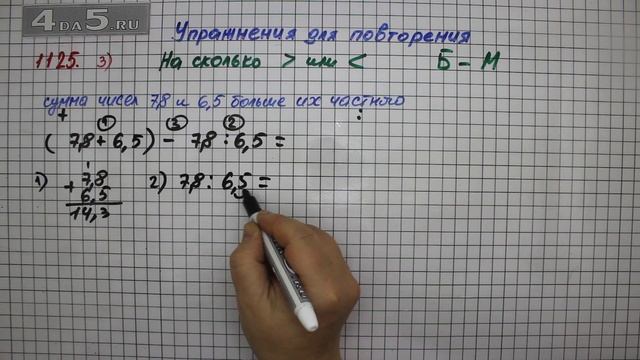 4DA5.RU
Упражнения для повторения
1125. 3) На сколько > или < Б – М
сумма чисел 7,8 и 6,5 больше их частного
+ :
1 3 2
( 7,8 + 6,5 ) – 7,8 : 6,5 =
1) 2) 7,8 : 6,5 =
1
7,8
+ 6,5
14,3